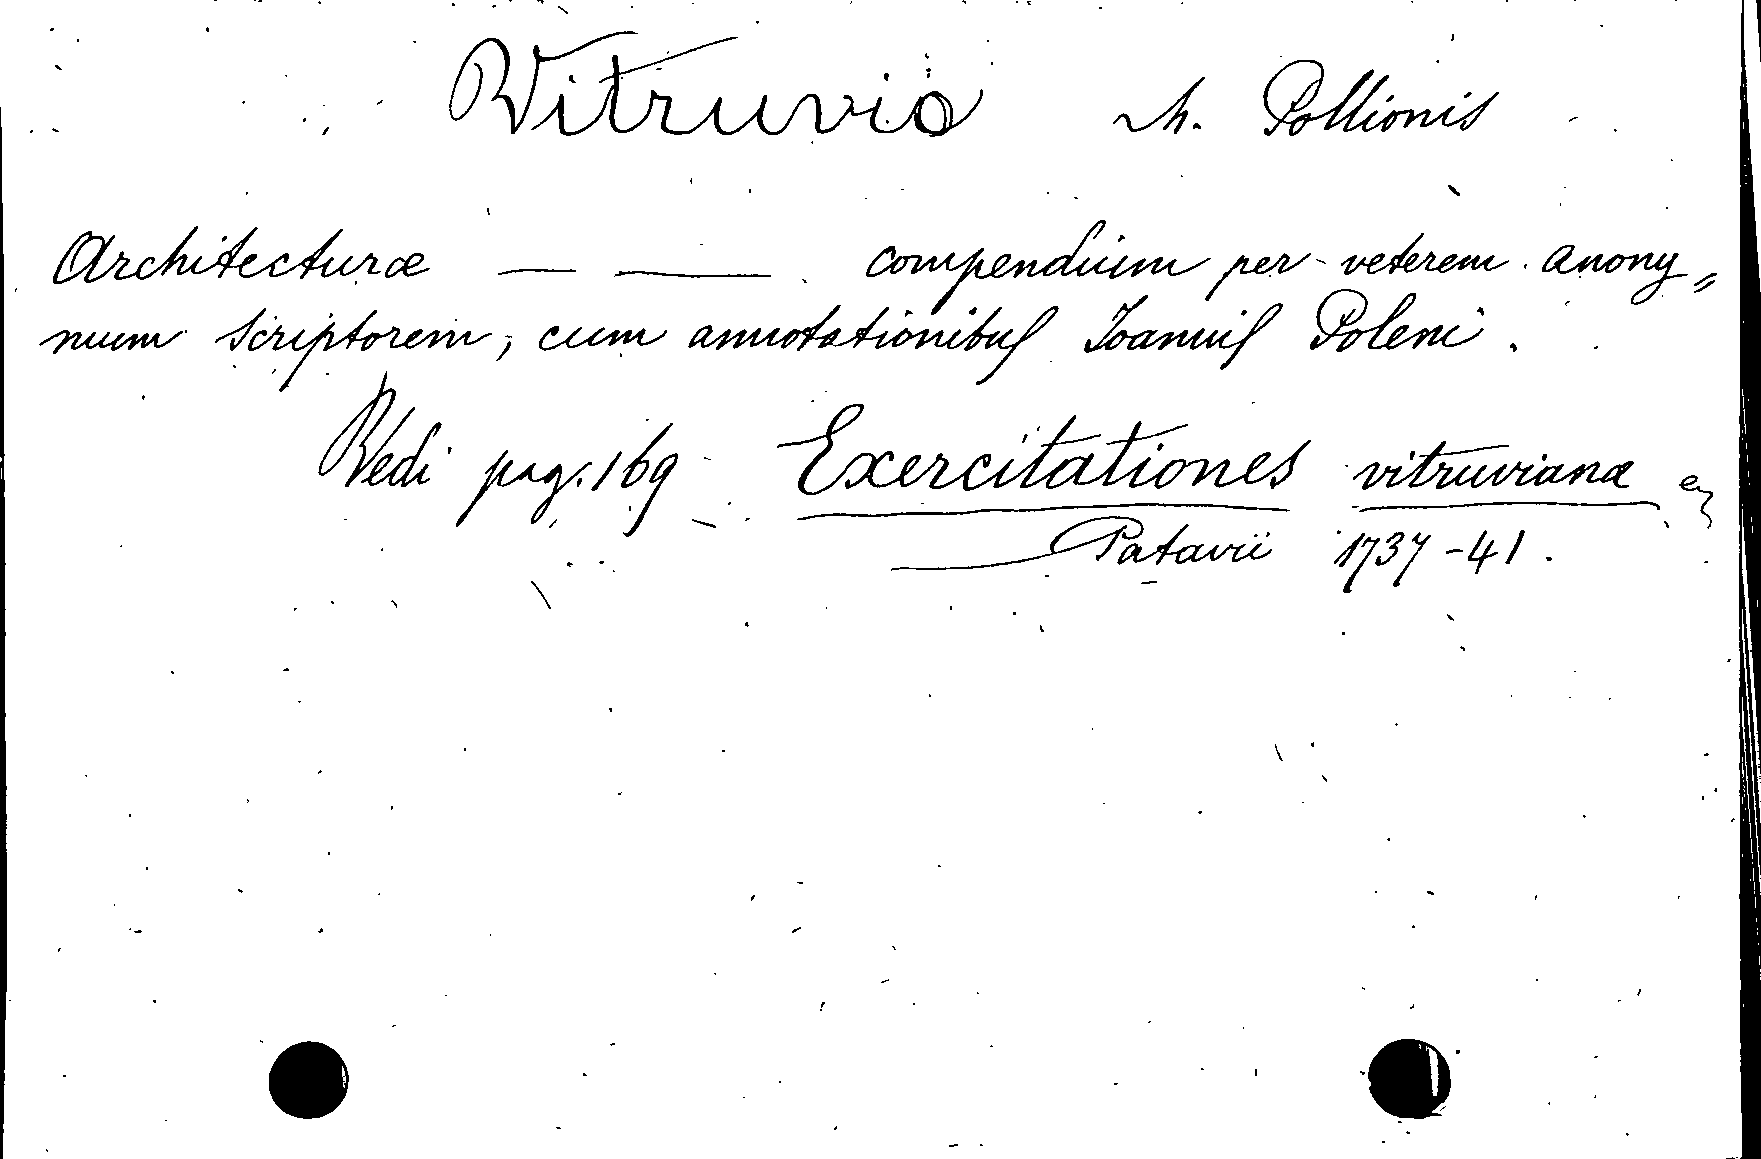 Vitruvio M. Pollionis
Architecturæ — — compendium per veterem anony„
mum scriptorem, cum annotationibus Ioannis Poleni.
Vedi pag. 169 Exercitationes vitruvianæ
Patavii 1737-41.